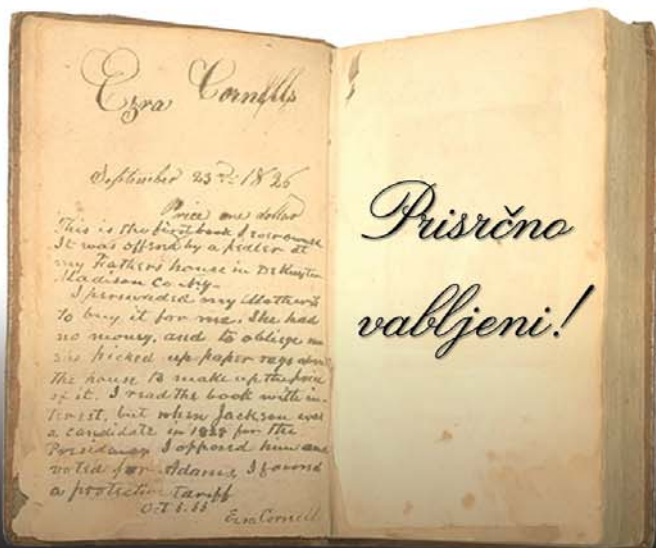 Ezra Cornells
September 23rd 1826
Price one dollar
This is the first book I ever owned
It was offered by a pedler at
my Fathers house in DeRuyter
Madison Co Ny.
I perswaded my Mother
to buy it for me. She had
no money, and to obliege me
she picked up paper rags
the house to make up the price
of it. I read the book with in-
terest, but when Jackson was
a candidate in 1828 for the
Presidency I opposed him and
voted for Adams, I favored
a protective tariff
Oct
Ezra Cornell
Prisrčno
vabljeni!